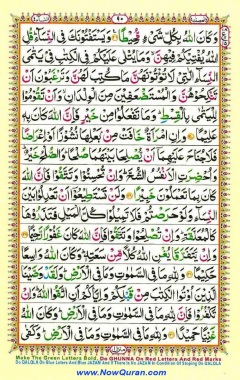 ٩٠
وَكَانَ اللّٰهُ بِكُلِّ شَیْءٍ مُّحِیْطًا وَیَسْتَفْتُوْنَكَ فِی النِّسَآءِ قُلِ
اللّٰهُ یُفْتِیْكُمْ فِیْهِنَّ وَمَا یُتْلٰی عَلَیْكُمْ فِی الْكِتٰبِ فِیْ یَتٰمَی
النِّسَآءِ الّٰتِیْ لَا تُؤْتُوْنَهُنَّ مَا كُتِبَ لَهُنَّ وَتَرْغَبُوْنَ اَنْ
تَنْكِحُوْهُنَّ وَالْمُسْتَضْعَفِیْنَ مِنَ الْوِلْدَانِ وَاَنْ تَقُوْمُوْا
لِلْیَتٰمٰی بِالْقِسْطِ وَمَا تَفْعَلُوْا مِنْ خَیْرٍ فَاِنَّ اللّٰهَ كَانَ بِهٖ
عَلِیْمًا وَاِنِ امْرَاَةٌ خَافَتْ مِنْ بَعْلِهَا نُشُوْزًا اَوْ اِعْرَاضًا
فَلَا جُنَاحَ عَلَیْهِمَا اَنْ یُّصْلِحَا بَیْنَهُمَا صُلْحًا وَالصُّلْحُ خَیْرٌ
وَاُحْضِرَتِ الْاَنْفُسُ الشُّحَّ وَاِنْ تُحْسِنُوْا وَتَتَّقُوْا فَاِنَّ اللّٰهَ
كَانَ بِمَا تَعْمَلُوْنَ خَبِیْرًا وَلَنْ تَسْتَطِیْعُوْا اَنْ تَعْدِلُوْا بَیْنَ
النِّسَآءِ وَلَوْ حَرَصْتُمْ فَلَا تَمِیْلُوْا كُلَّ الْمَیْلِ فَتَذَرُوْهَا
كَالْمُعَلَّقَةِ وَاِنْ تُصْلِحُوْا وَتَتَّقُوْا فَاِنَّ اللّٰهَ كَانَ غَفُوْرًا رَّحِیْمًا
وَاِنْ یَّتَفَرَّقَا یُغْنِ اللّٰهُ كُلًّا مِّنْ سَعَتِهٖ وَكَانَ اللّٰهُ وَاسِعًا
حَكِیْمًا وَلِلّٰهِ مَا فِی السَّمٰوٰتِ وَمَا فِی الْاَرْضِ وَلَقَدْ وَصَّیْنَا
الَّذِیْنَ اُوْتُوا الْكِتٰبَ مِنْ قَبْلِكُمْ وَاِیَّاكُمْ اَنِ اتَّقُوا اللّٰهَ وَاِنْ
تَكْفُرُوْا فَاِنَّ لِلّٰهِ مَا فِی السَّمٰوٰتِ وَمَا فِی الْاَرْضِ وَكَانَ اللّٰهُ
غَنِیًّا حَمِیْدًا وَلِلّٰهِ مَا فِی السَّمٰوٰتِ وَمَا فِی الْاَرْضِ وَكَفٰی
Make The Green Letters Bold, Do GHUNNA On Red Letters And Red Marks
Do QALQALA On Blue Letters And Blue JAZAM And
www.NowQuran.com